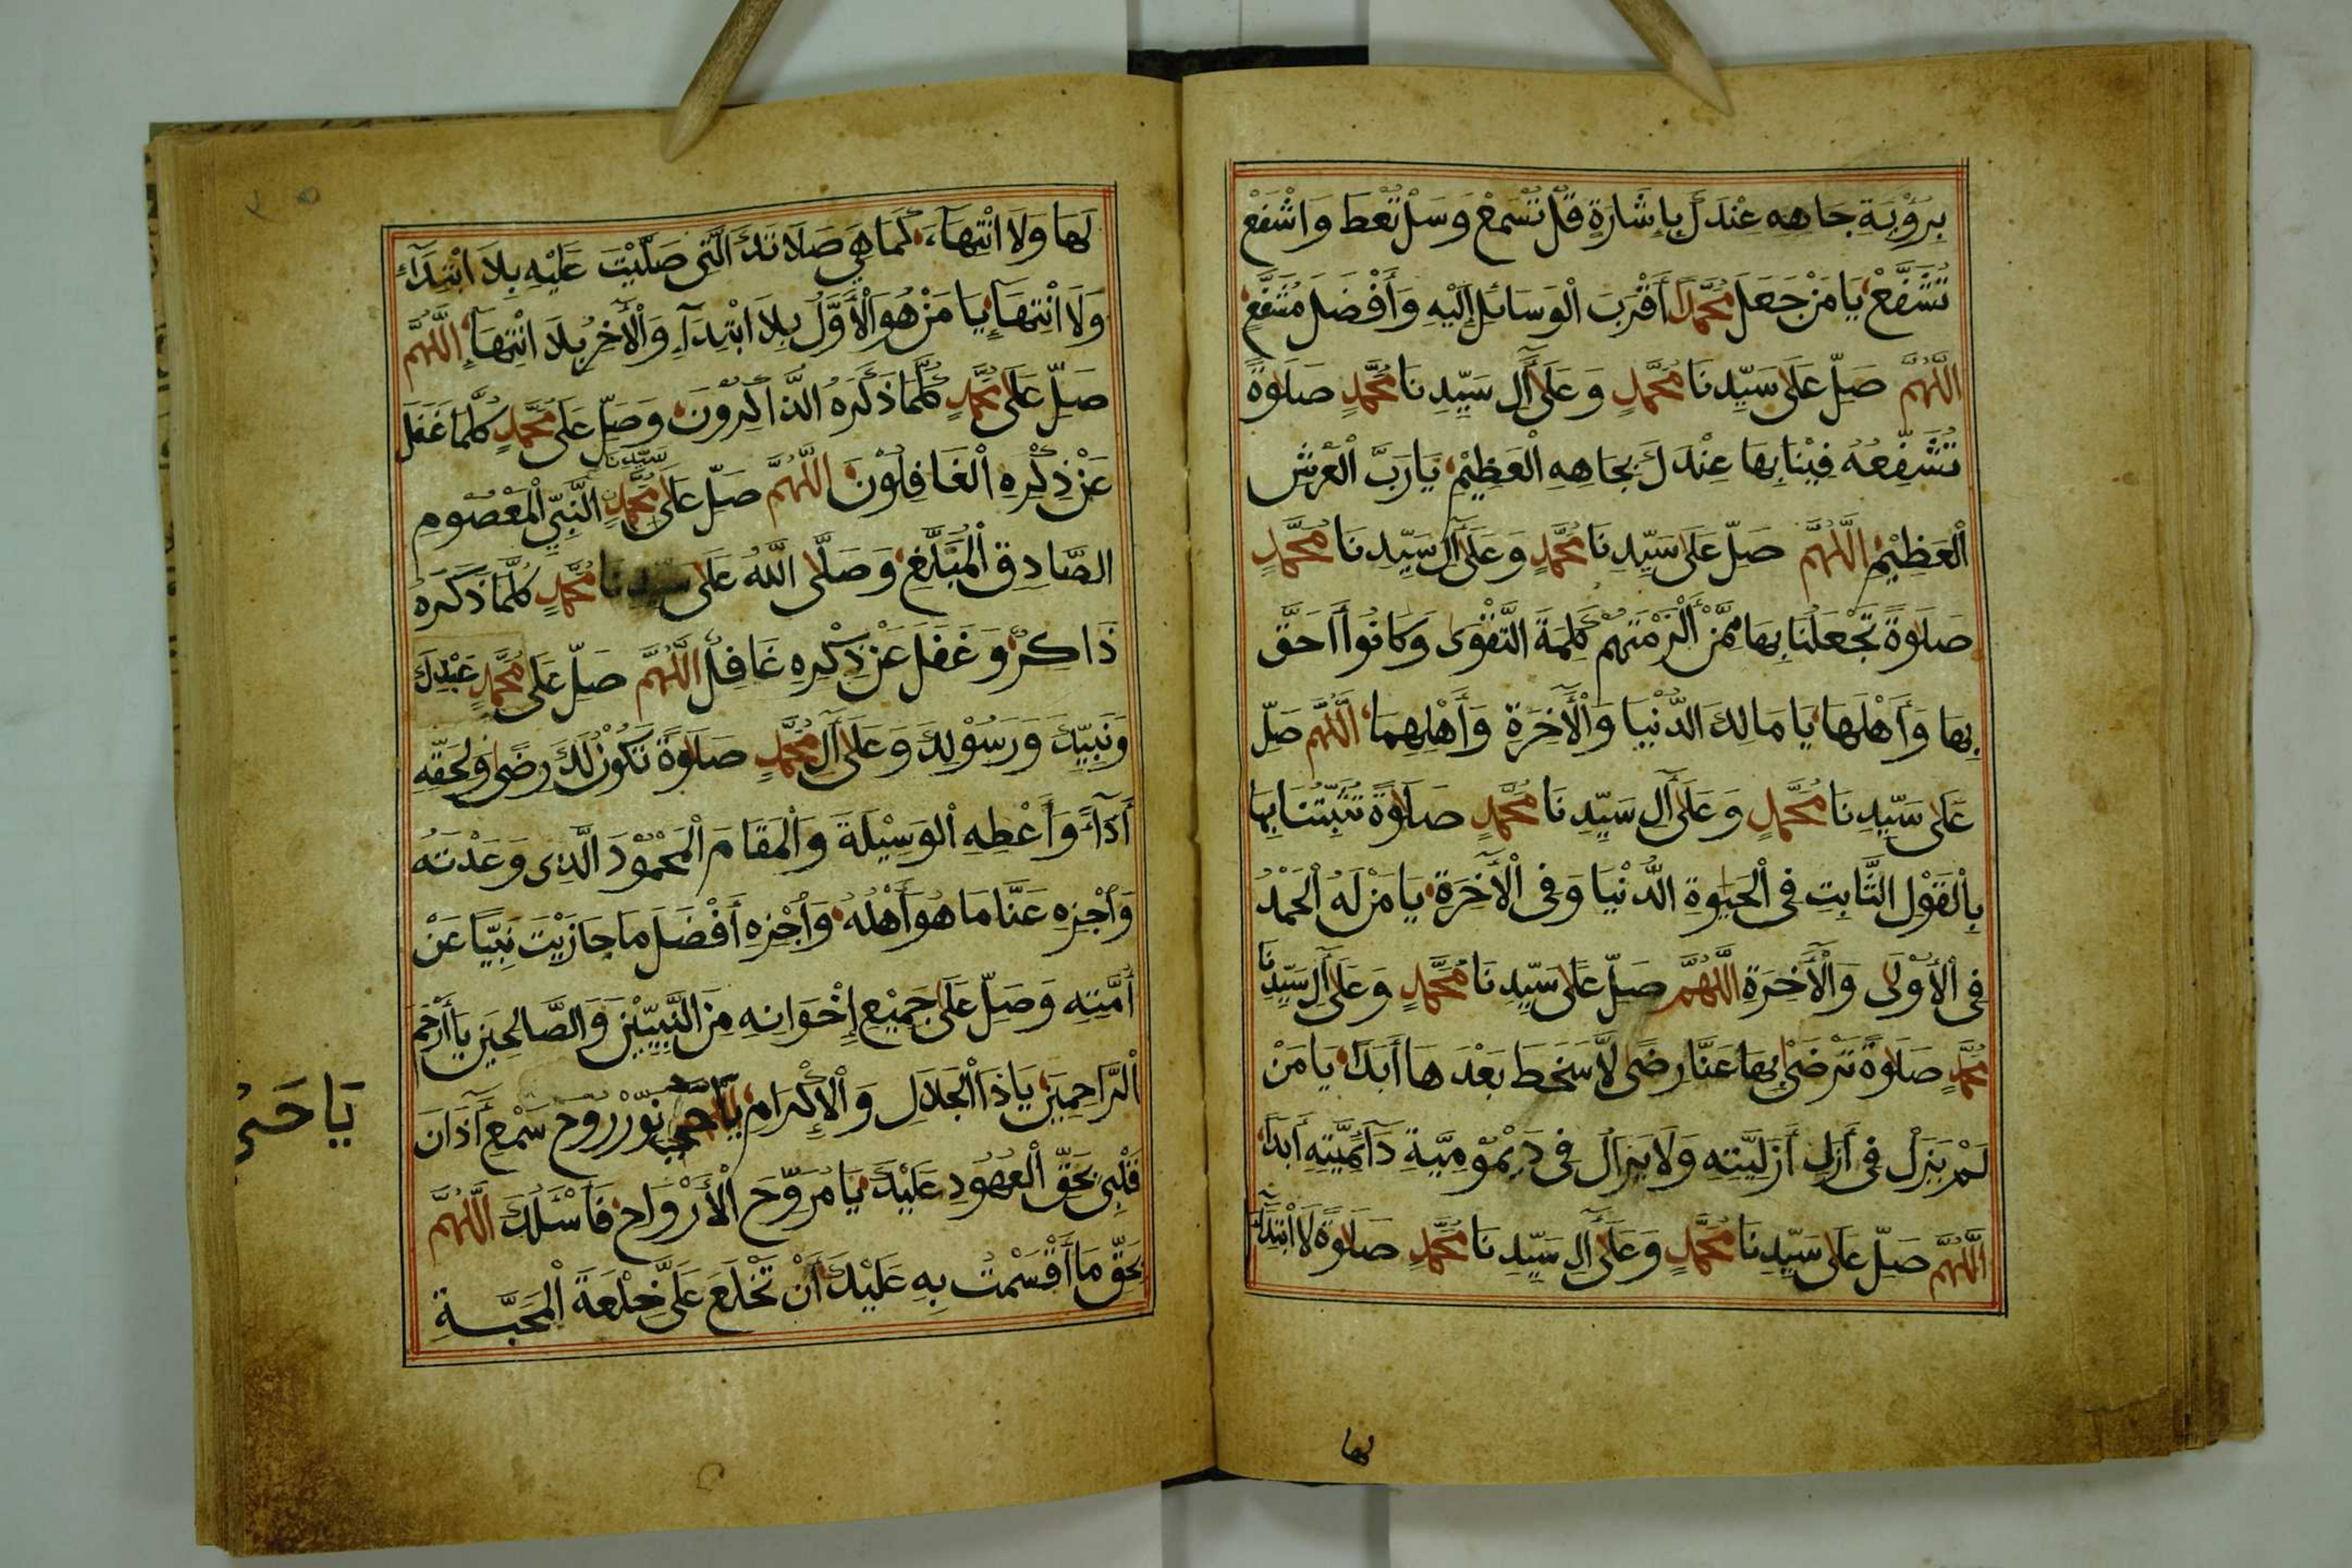 بِرُؤْيَةِ جَاهِهِ عِنْدَكَ بِإِشَارَةِ قُلْ تُسْمَعْ وَسَلْ تُعْطَ وَاشْفَعْ
تُشَفَّعْ يَا مَنْ جَعَلَ مُحَمَّدًا أَقْرَبَ الْوَسَائِلِ إِلَيْهِ وَأَفْضَلَ مُشَفَّعٍ
اللَّهُمَّ صَلِّ عَلَى سَيِّدِنَا مُحَمَّدٍ وَعَلَى آلِ سَيِّدِنَا مُحَمَّدٍ صَلَوٰةً
تُشَفِّعُهُ فِيْنَا بِهَا عِنْدَكَ بِجَاهِهِ الْعَظِيْمِ يَا رَبَّ الْعَرْشِ
الْعَظِيْمِ اللَّهُمَّ صَلِّ عَلَى سَيِّدِنَا مُحَمَّدٍ وَعَلَى آلِ سَيِّدِنَا مُحَمَّدٍ
صَلَوٰةً تَجْعَلُنَا بِهَا مِمَّنْ أَلْزَمْتَهُمْ كَلِمَةَ التَّقْوَى وَكَانُوا أَحَقَّ
بِهَا وَأَهْلَهَا يَا مَالِكَ الدُّنْيَا وَالْأَخِرَةِ وَأَهْلِهِمَا اللَّهُمَّ صَلِّ
عَلَى سَيِّدِنَا مُحَمَّدٍ وَعَلَى آلِ سَيِّدِنَا مُحَمَّدٍ صَلَوٰةً تُثَبِّتُنَا بِهَا
بِالْقَوْلِ الثَّابِتِ فِى الْحَيَوٰةِ الدُّنْيَا وَفِى الْأَخِرَةِ يَا مَنْ لَهُ الْحَمْدُ
فِى الْأُوْلَى وَالْأَخِرَةِ اللَّهُمَّ صَلِّ عَلَى سَيِّدِنَا مُحَمَّدٍ وَعَلَى آلِ سَيِّدِنَا
مُحَمَّدٍ صَلَوٰةً تَرْضَى بِهَا عَنَّا رِضًى لَّا سَخَطَ بَعْدَهَا أَبَدًا يَا مَنْ
لَمْ يَزَلْ فِى أَزَلِ أَزَلِيَّتِهِ وَلَا يَزَالُ فِى دَيْمُوْمِيَّةِ دَآئِمِيَّتِهِ أَبَدًا
اللَّهُمَّ صَلِّ عَلَى سَيِّدِنَا مُحَمَّدٍ وَعَلَى آلِ سَيِّدِنَا مُحَمَّدٍ صَلَوٰةً لَا ابْتِدَآءَ
لها
لَهَا وَلَا انْتِهَآءَ كَمَا هِيَ صَلَاتُكَ الَّتِى صَلَّيْتَ عَلَيْهِ بِلَا ابْتِدَآءٍ
وَلَا انْتِهَآءٍ يَا مَنْ هُوَ الْأَوَّلُ بِلَا ابْتِدَآءٍ وَالْأَخِرُ بِلَا انْتِهَآءٍ اللَّهُمَّ
صَلِّ عَلَى مُحَمَّدٍ كُلَّمَا ذَكَرَهُ الذَّاكِرُونَ وَصَلِّ عَلَى مُحَمَّدٍ كُلَّمَا غَفَلَ
عَنْ ذِكْرِهِ الْغَافِلُوْنَ اللَّهُمَّ صَلِّ عَلَى سيدنا مُحَمَّدٍ النَّبِيِّ الْمَعْصُومِ
الصَّادِقِ الْمُبَلِّغِ وَصَلَّى اللَّهُ عَلَى سَيِّدِنَا مُحَمَّدٍ كُلَّمَا ذَكَرَهُ
ذَاكِرٌ وَغَفَلَ عَنْ ذِكْرِهِ غَافِلٌ اللَّهُمَّ صَلِّ عَلَى مُحَمَّدٍ عَبْدِكَ
وَنَبِيِّكَ وَرَسُوْلِكَ وَعَلَى آلِ مُحَمَّدٍ صَلَوٰةً تَكُوْنُ لَكَ رِضًى وَلِحَقِّهِ
أَدَآءً وَأَعْطِهِ الْوَسِيْلَةَ وَالْمَقَامَ الْمَحْمُوْدَ الَّذِى وَعَدْتَهُ
وَاجْزِهِ عَنَّا مَا هُوَ أَهْلُهُ وَاجْزِهِ أَفْضَلَ مَا جَازَيْتَ نَبِيًّا عَنْ
أُمَّتِهِ وَصَلِّ عَلَى جَمِيْعِ إِخْوَانِهِ مِنَ النَّبِيِّيْنَ وَالصَّالِحِيْنَ يَا أَرْحَمَ
الرَّاحِمِيْنَ يَا ذَا الْجَلَالِ وَالْإِكْرَامِ يَا حَيُّ نَوِّرْ رُوْحَ سَمْعِ آذَانَ
يَا حَىُّ
قَلْبِى بِحَقِّ الْعُهُوْدِ عَلَيْكَ يَا مُرَوِّحَ الْأَرْوَاحِ فَأَسْئَلُكَ اللَّهُمَّ
بِحَقِّ مَا أَقْسَمْتُ بِهِ عَلَيْكَ أَنْ تَخْلَعَ عَلَيَّ خِلْعَةَ الْمَحَبَّةِ